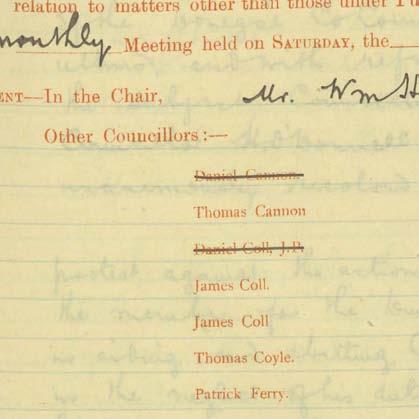 relation to matters other than those under
monthly Meeting held on Saturday, the
ENT—In the Chair, Mr. Wm H
Other Councillors:—
Daniel Cannon.
Thomas Cannon
Daniel Coll, J.P.
James Coll.
James Coll
Thomas Coyle.
Patrick Ferry.